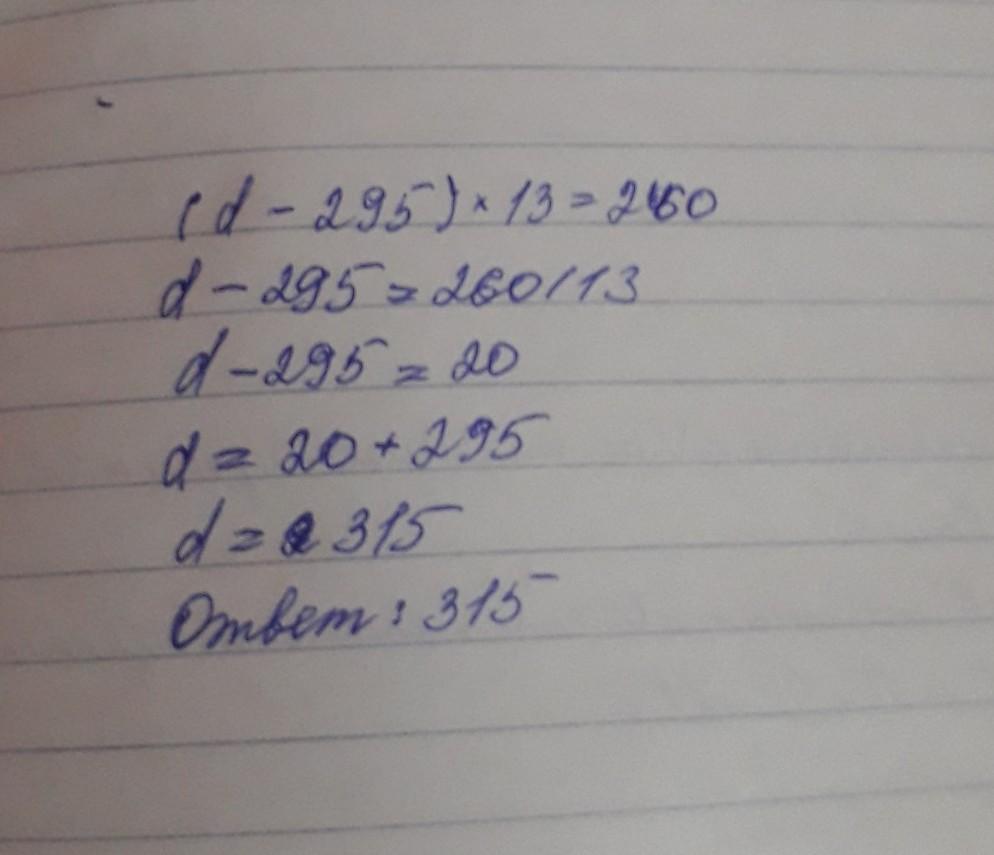 (d - 295) × 13 = 260
d - 295 = 260/13
d - 295 = 20
d = 20 + 295
d = 315
Ответ: 315